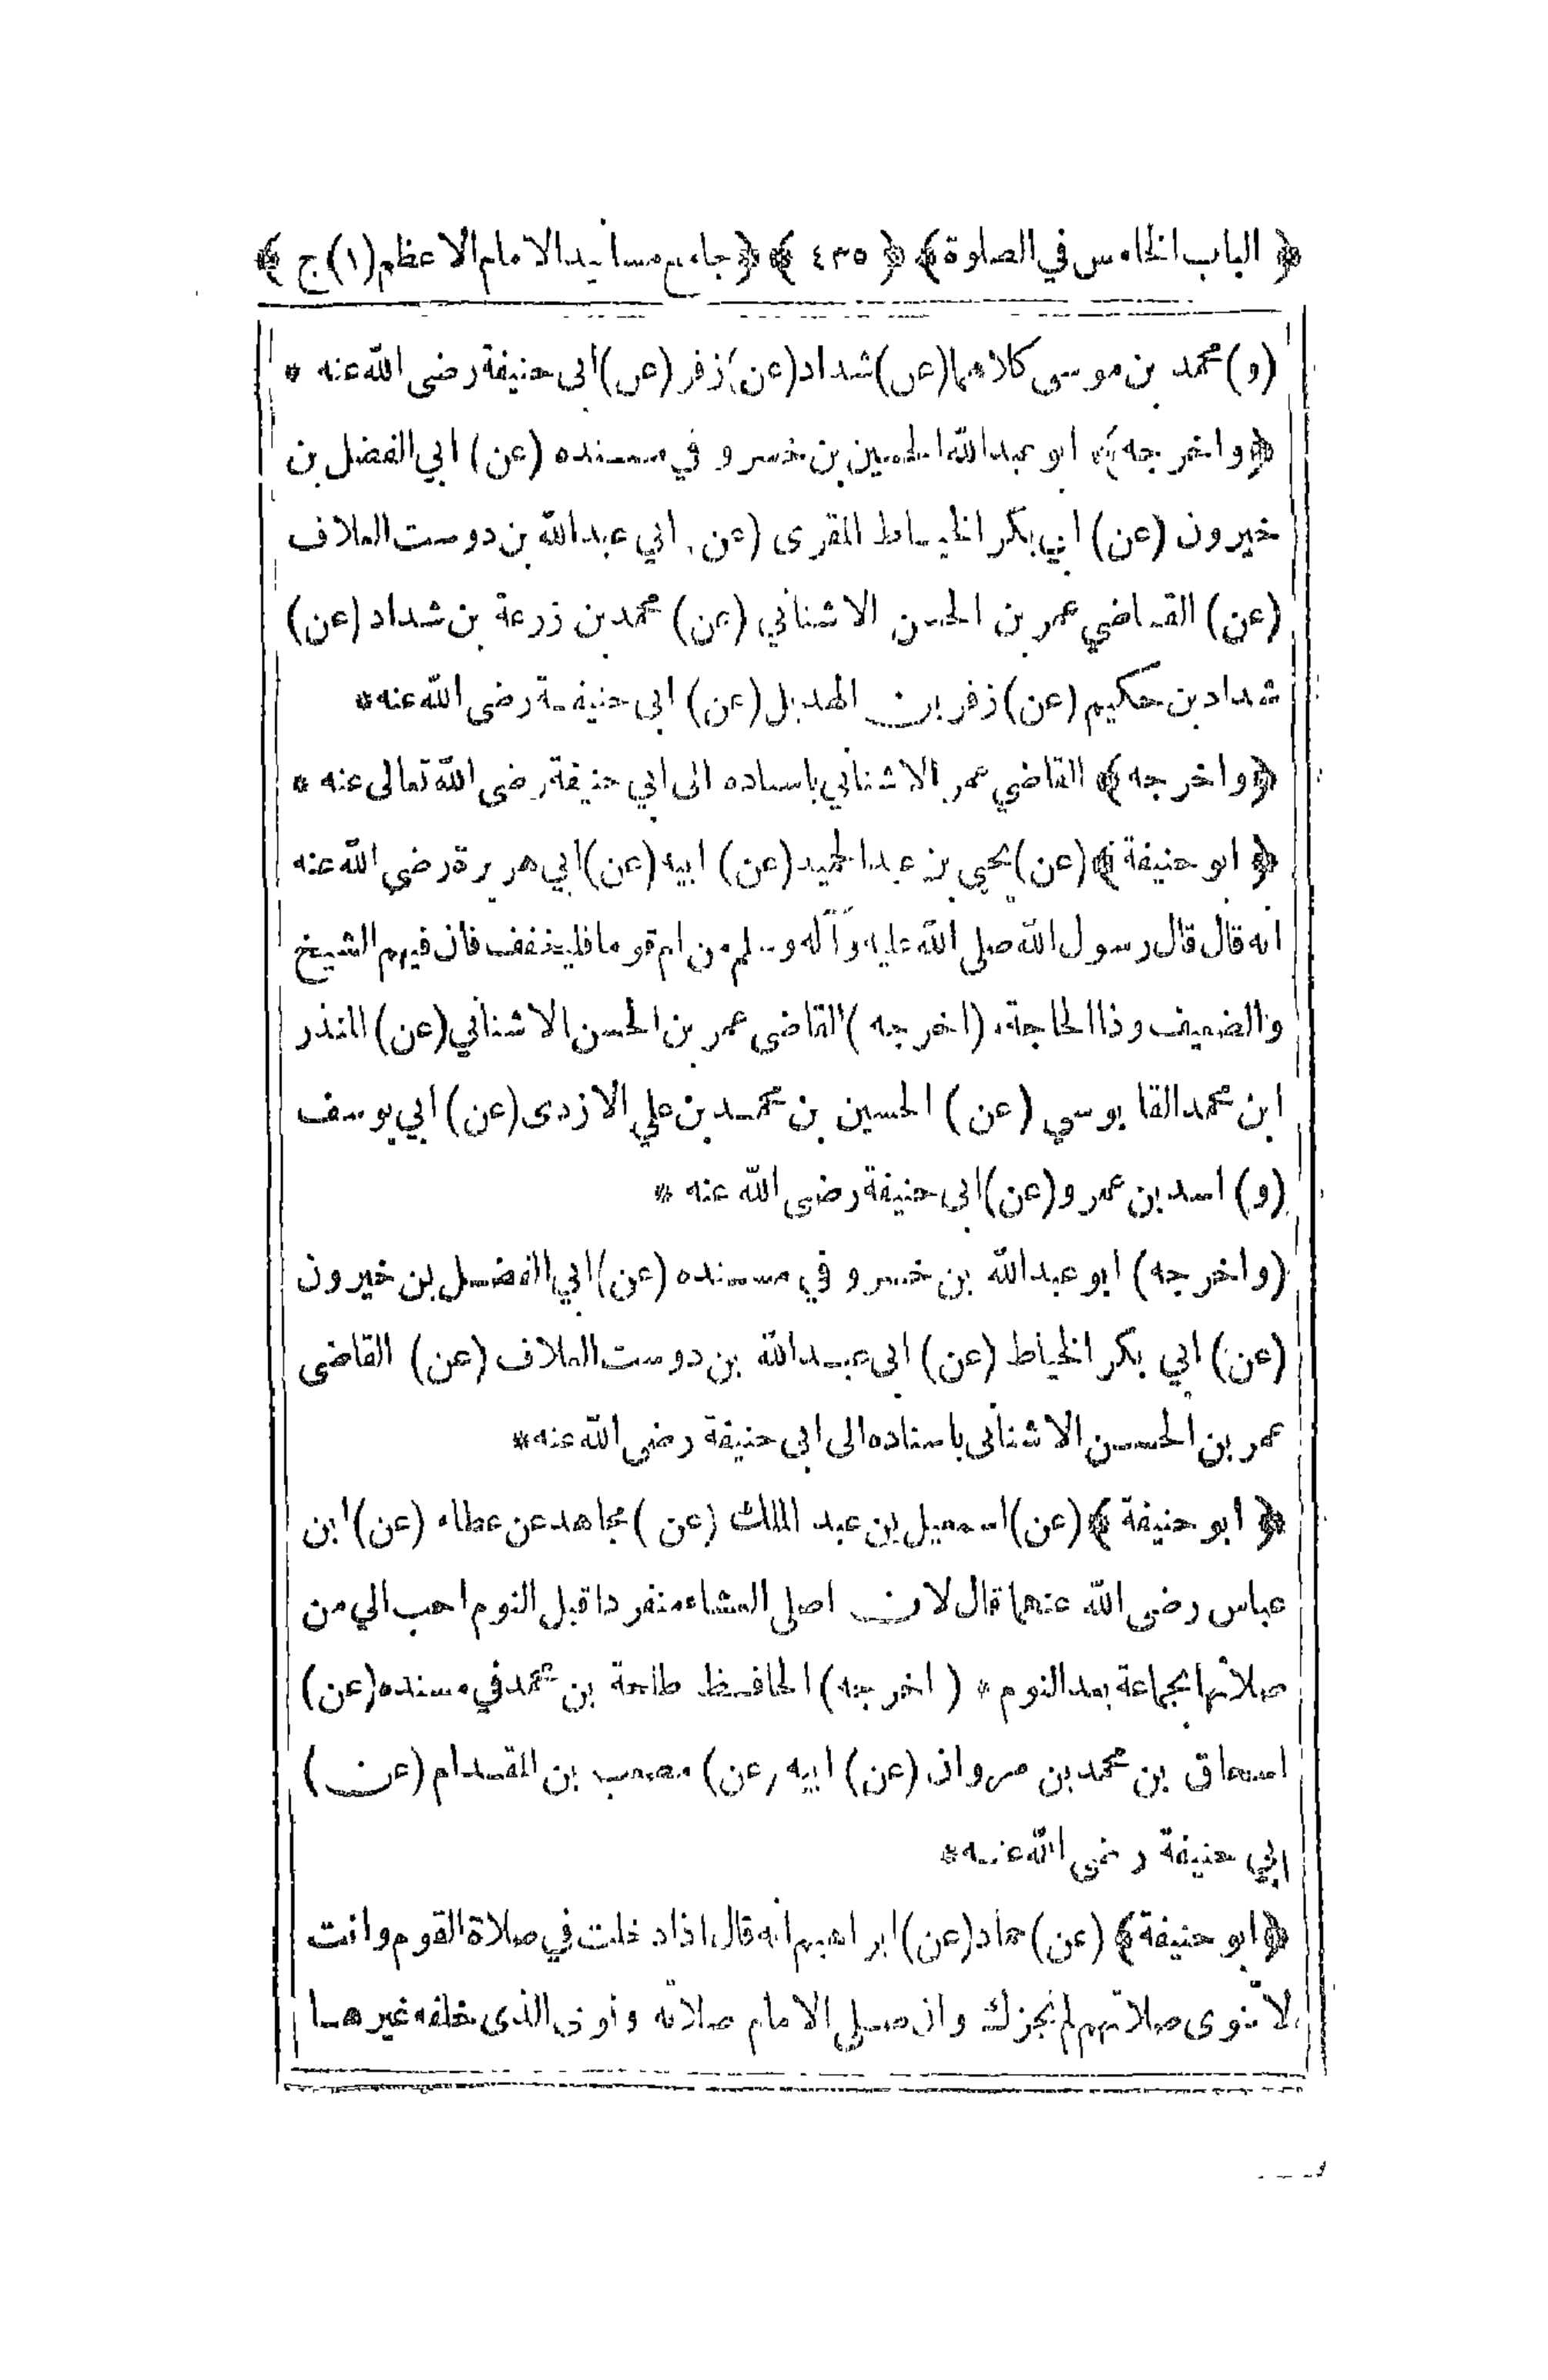 ﴿ الباب الخامس في الصلوة ﴾ ﴿ ٤٣٥ ﴾ ﴿ جامع مسانيد الامام الاعظم (١) ج ﴾
(و) محمد بن موسى كلاهما (عن) شداد (عن) زفر (عن) ابى حنيفة رضى الله عنه *
﴿ واخرجه ﴾ ابو عبد الله الحسين بن خسرو في مسنده (عن) ابي الفضل بن
خيرون (عن) ابي بكر الخياط المقرى (عن) ابي عبد الله بن دوست العلاف
(عن) القاضي عمر بن الحسن الاشناني (عن) محمد بن زرعة بن شداد (عن)
شداد بن حكيم (عن) زفر بن الهديل (عن) ابى حنيفة رضى الله عنه *
﴿ واخرجه ﴾ القاضي عمر الاشناني باسناده الى ابي حنيفة رضى الله تعالى عنه *
﴿ ابو حنيفة ﴾ (عن) يحيى بن عبد الحميد (عن) ابيه (عن) ابي هريرة رضى الله عنه
انه قال قال رسول الله صلى الله عليه وآله وسلم من ام قوما فليخفف فان فيهم الشيخ
والضعيف وذا الحاجة * (اخرجه) القاضى عمر بن الحسن الاشناني (عن) المنذر
ابن محمد القابوسي (عن) الحسين بن محمد بن علي الازدى (عن) ابي يوسف
(و) اسد بن عمرو (عن) ابى حنيفة رضى الله عنه *
(واخرجه) ابو عبد الله بن خسرو في مسنده (عن) ابي الفضل بن خيرون
(عن) ابي بكر الخياط (عن) ابى عبد الله بن دوست العلاف (عن) القاضى
عمر بن الحسن الاشنانى باسناده الى ابى حنيفة رضى الله عنه *
﴿ ابو حنيفة ﴾ (عن) اسمعيل بن عبد الملك (عن) مجاهد عن عطاء (عن) ابن
عباس رضى الله عنهما قال لان اصلى العشاء منفردا قبل النوم احب الي من
صلاتها بجماعة بعد النوم * (اخرجه) الحافظ طلحة بن محمد في مسنده (عن)
اسحاق بن محمد بن مروان (عن) ابيه (عن) مصعب بن المقدام (عن)
ابي حنيفة رضى الله عنه *
﴿ ابو حنيفة ﴾ (عن) حماد (عن) ابراهيم انه قال اذا دخلت في صلاة القوم وانت
لا تنوى صلاتهم لم تجزك وان صلى الامام صلاته ونوى الذى خلفه غيرها